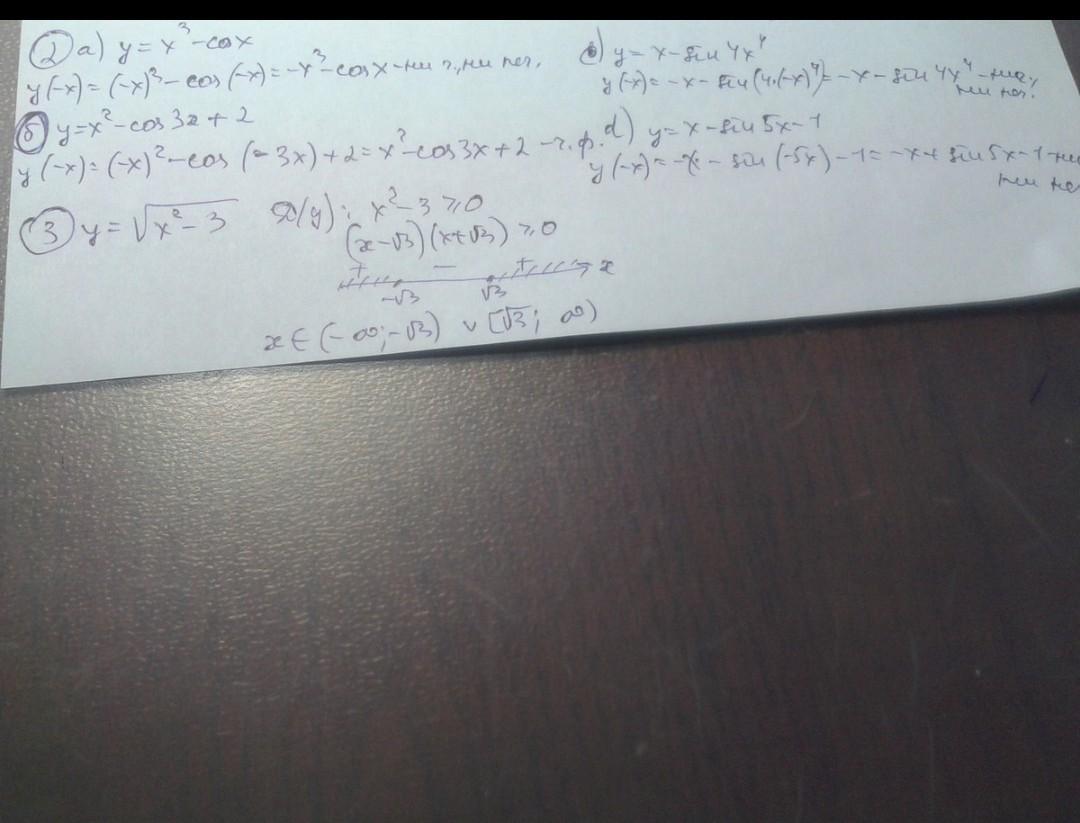 2 a) y = x³ - cos x
y(-x) = (-x)³ - cos(-x) = -x³ - cos x - ни ч., ни неч.
б) y = x² - cos 3x + 2
y(-x) = (-x)² - cos (-3x) + 2 = x² - cos 3x + 2 - ч. ф.
c) y = x - sin 4x⁴
y(-x) = -x - sin(4·(-x)⁴) = -x - sin 4x⁴ - ни ч.,
ни неч.
d) y = x - sin 5x - 1
y(-x) = -x - sin (-5x) - 1 = -x + sin 5x - 1 - ни
ни не
3 y = √x² - 3 D(y): x² - 3 ≥ 0
(x - √3)(x + √3) ≥ 0
+ - + x
-√3 √3
x ∈ (-∞; -√3) ∪ [√3; ∞)